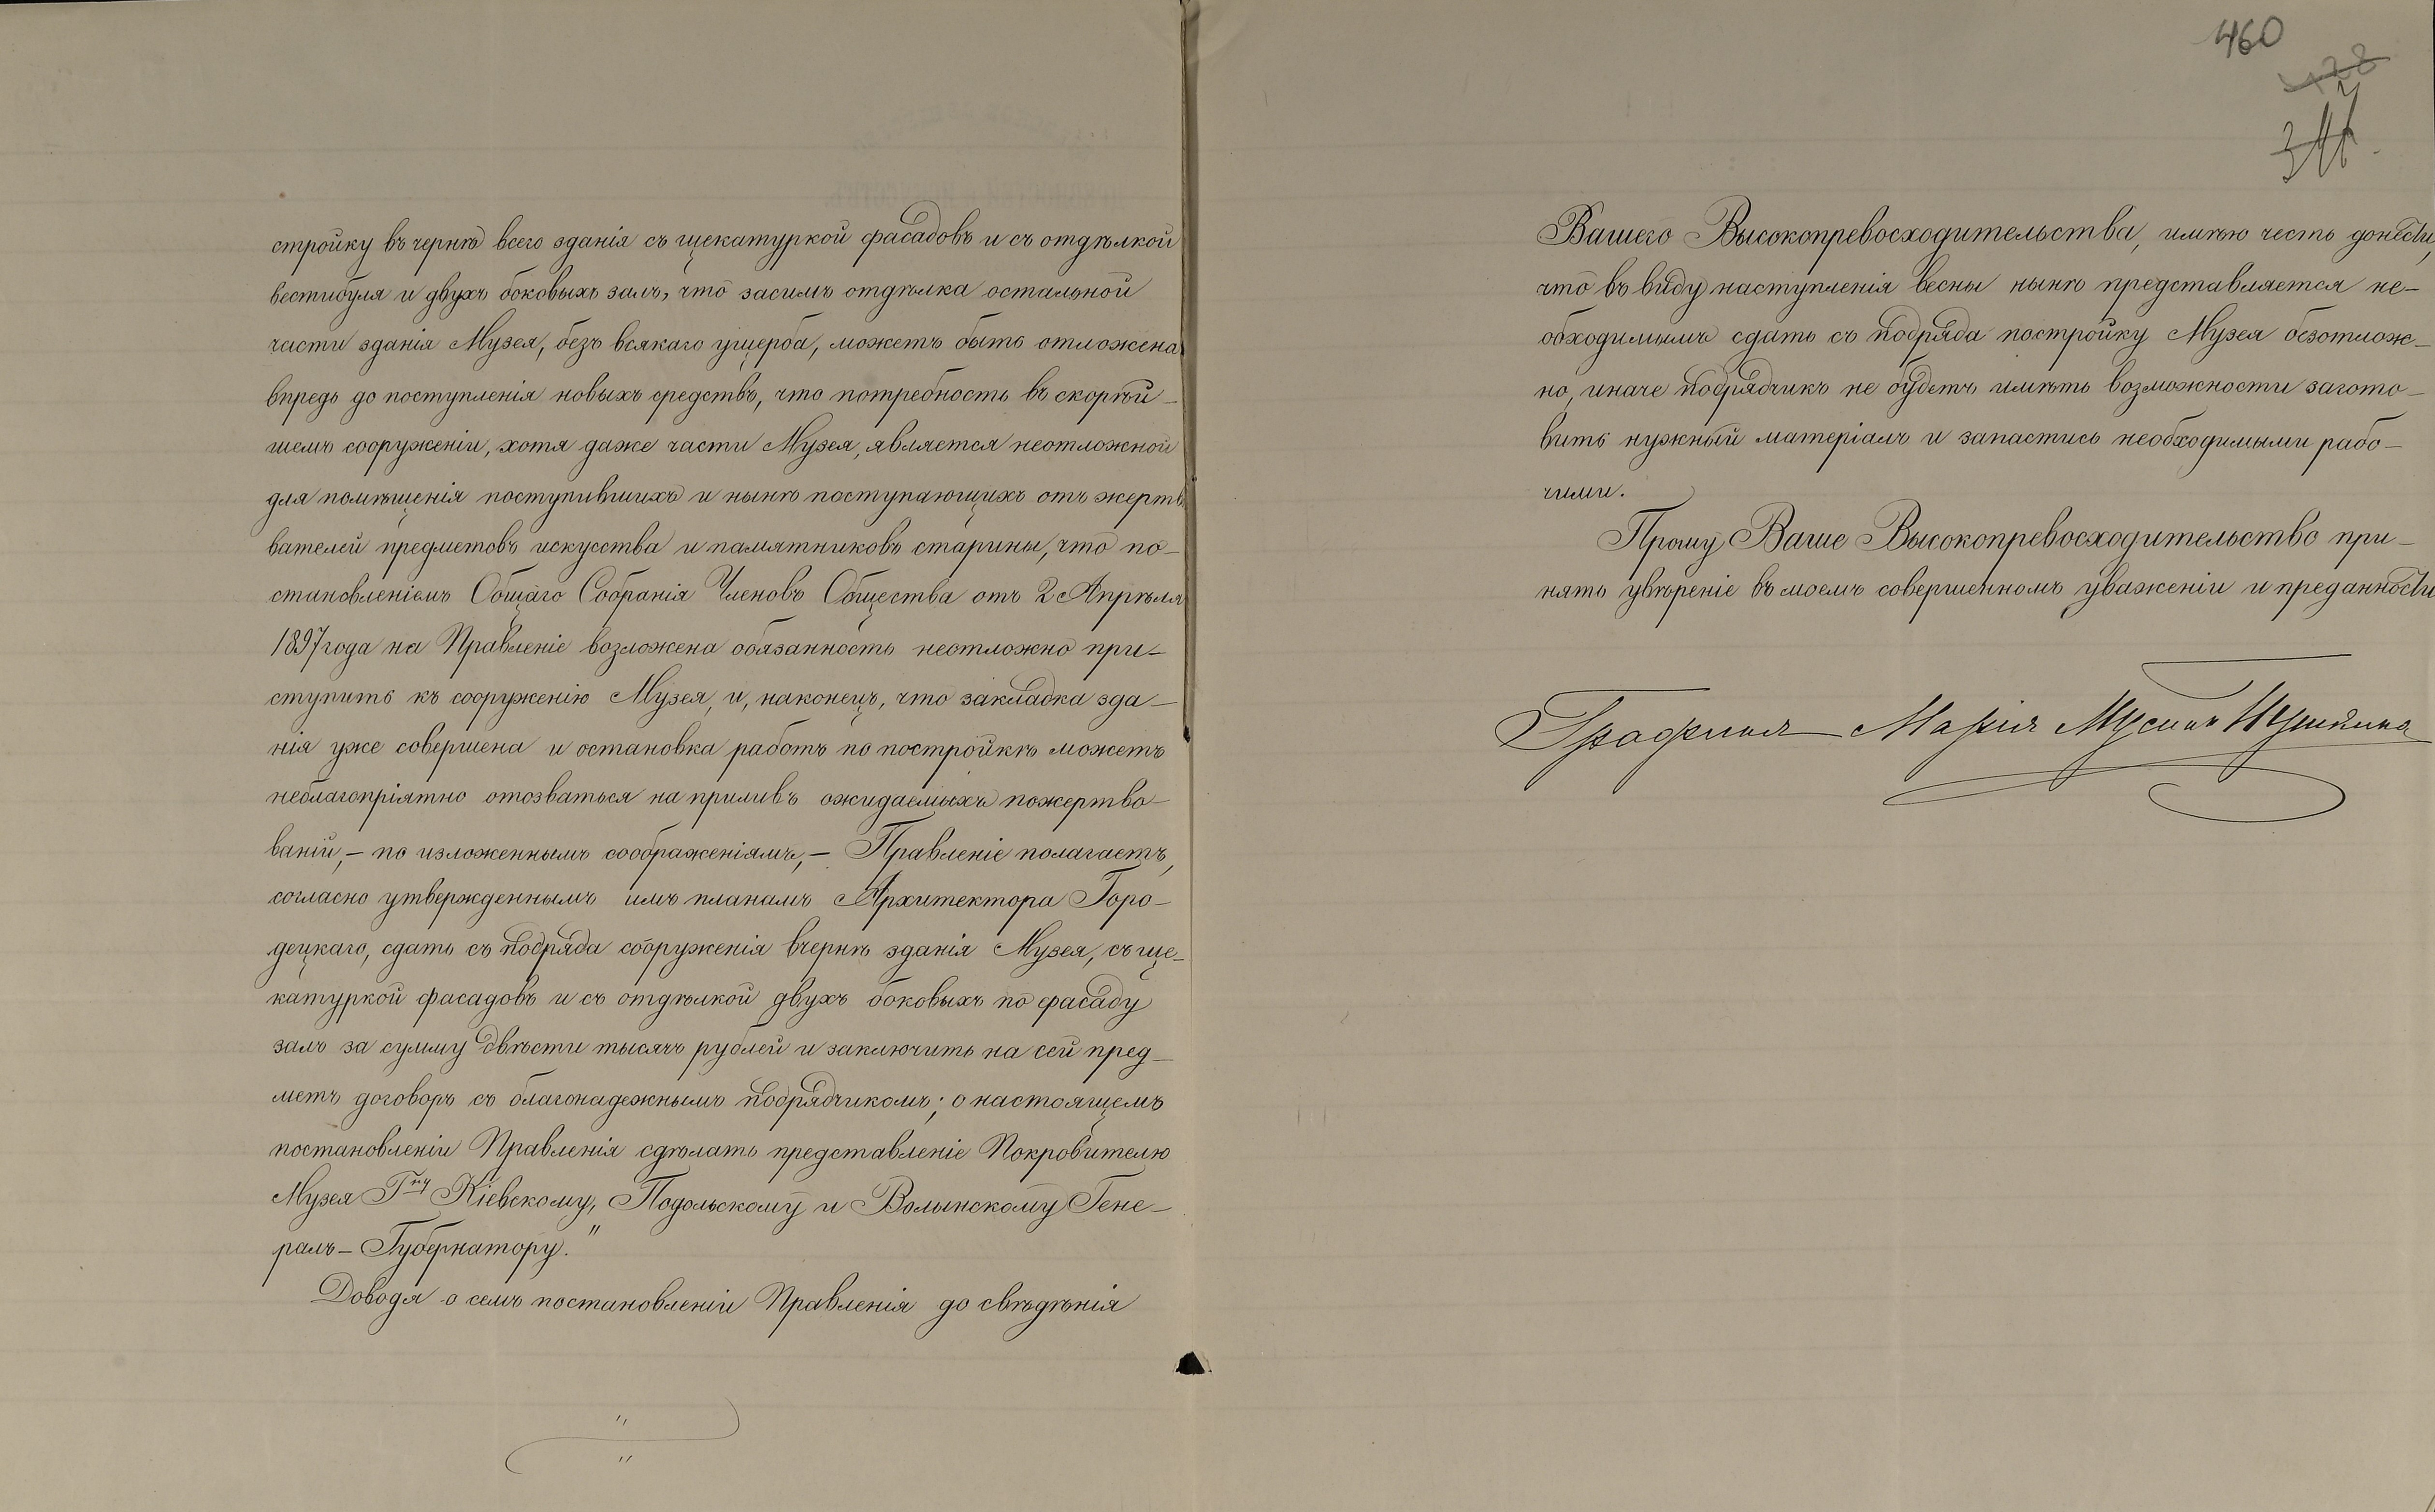 стройку въ чернѣ всего зданія съ щекатуркой фасадовъ и съ отдѣлкой
вестибуля и двухъ боковыхъ залъ, что засимъ отдѣлка остальной
части зданія Музея, безъ всякаго ущерба, можетъ быть отложена
впредь до поступленія новыхъ средствъ, что потребность въ скорѣй-
шемъ сооруженіи, хотя даже части Музея, является неотложной
для помѣщенія поступившихъ и нынѣ поступающихъ отъ жертв
вателей предметовъ искусства и памятниковъ старины, что по-
становленіемъ Общаго Собранія Членовъ Общества отъ 2 Апрѣля
1897 года на Правленіе возложена обязанность неотложно при-
ступить къ сооруженію Музея, и, наконецъ, что закладка зда-
нія уже совершена и остановка работъ по постройкѣ можетъ
неблагопріятно отозваться на приливъ ожидаемыхъ пожертво-
ваній,- по изложеннымъ соображеніямъ,- Правленіе полагаетъ,
согласно утвержденнымъ имъ планамъ Архитектора Горо-
децкаго, сдать съ подряда сооруженія вчернѣ зданія Музея, съ ще-
катуркой фасадовъ и съ отдѣлкой двухъ боковыхъ по фасаду
залъ за сумму двѣсти тысячъ рублей и заключить на сей пред-
метъ договоръ съ благонадежнымъ подрядчикомъ; о настоящемъ
постановленіи Правленія сдѣлать представленіе Покровителю
Музея Г-ну Кіевскому, Подольскому и Волынскому Гене-
ралъ-Губернатору."
Доводя о семъ постановленіи Правленія до свѣдѣнія
460
Вашего Высокопревосходительства, имѣю честь донести,
что въ виду наступленія весны нынѣ представляется не-
обходимымъ сдать съ подряда постройку Музея безотлож-
но, иначе подрядчикъ не будетъ имѣть возможности загото-
вить нужный матеріалъ и запастись необходимыми рабо-
чими.
Прошу Ваше Высокопревосходительство при-
нять увѣреніе въ моемъ совершенномъ уваженіи и преданности
Графиня Марія Мусинъ Пушкина